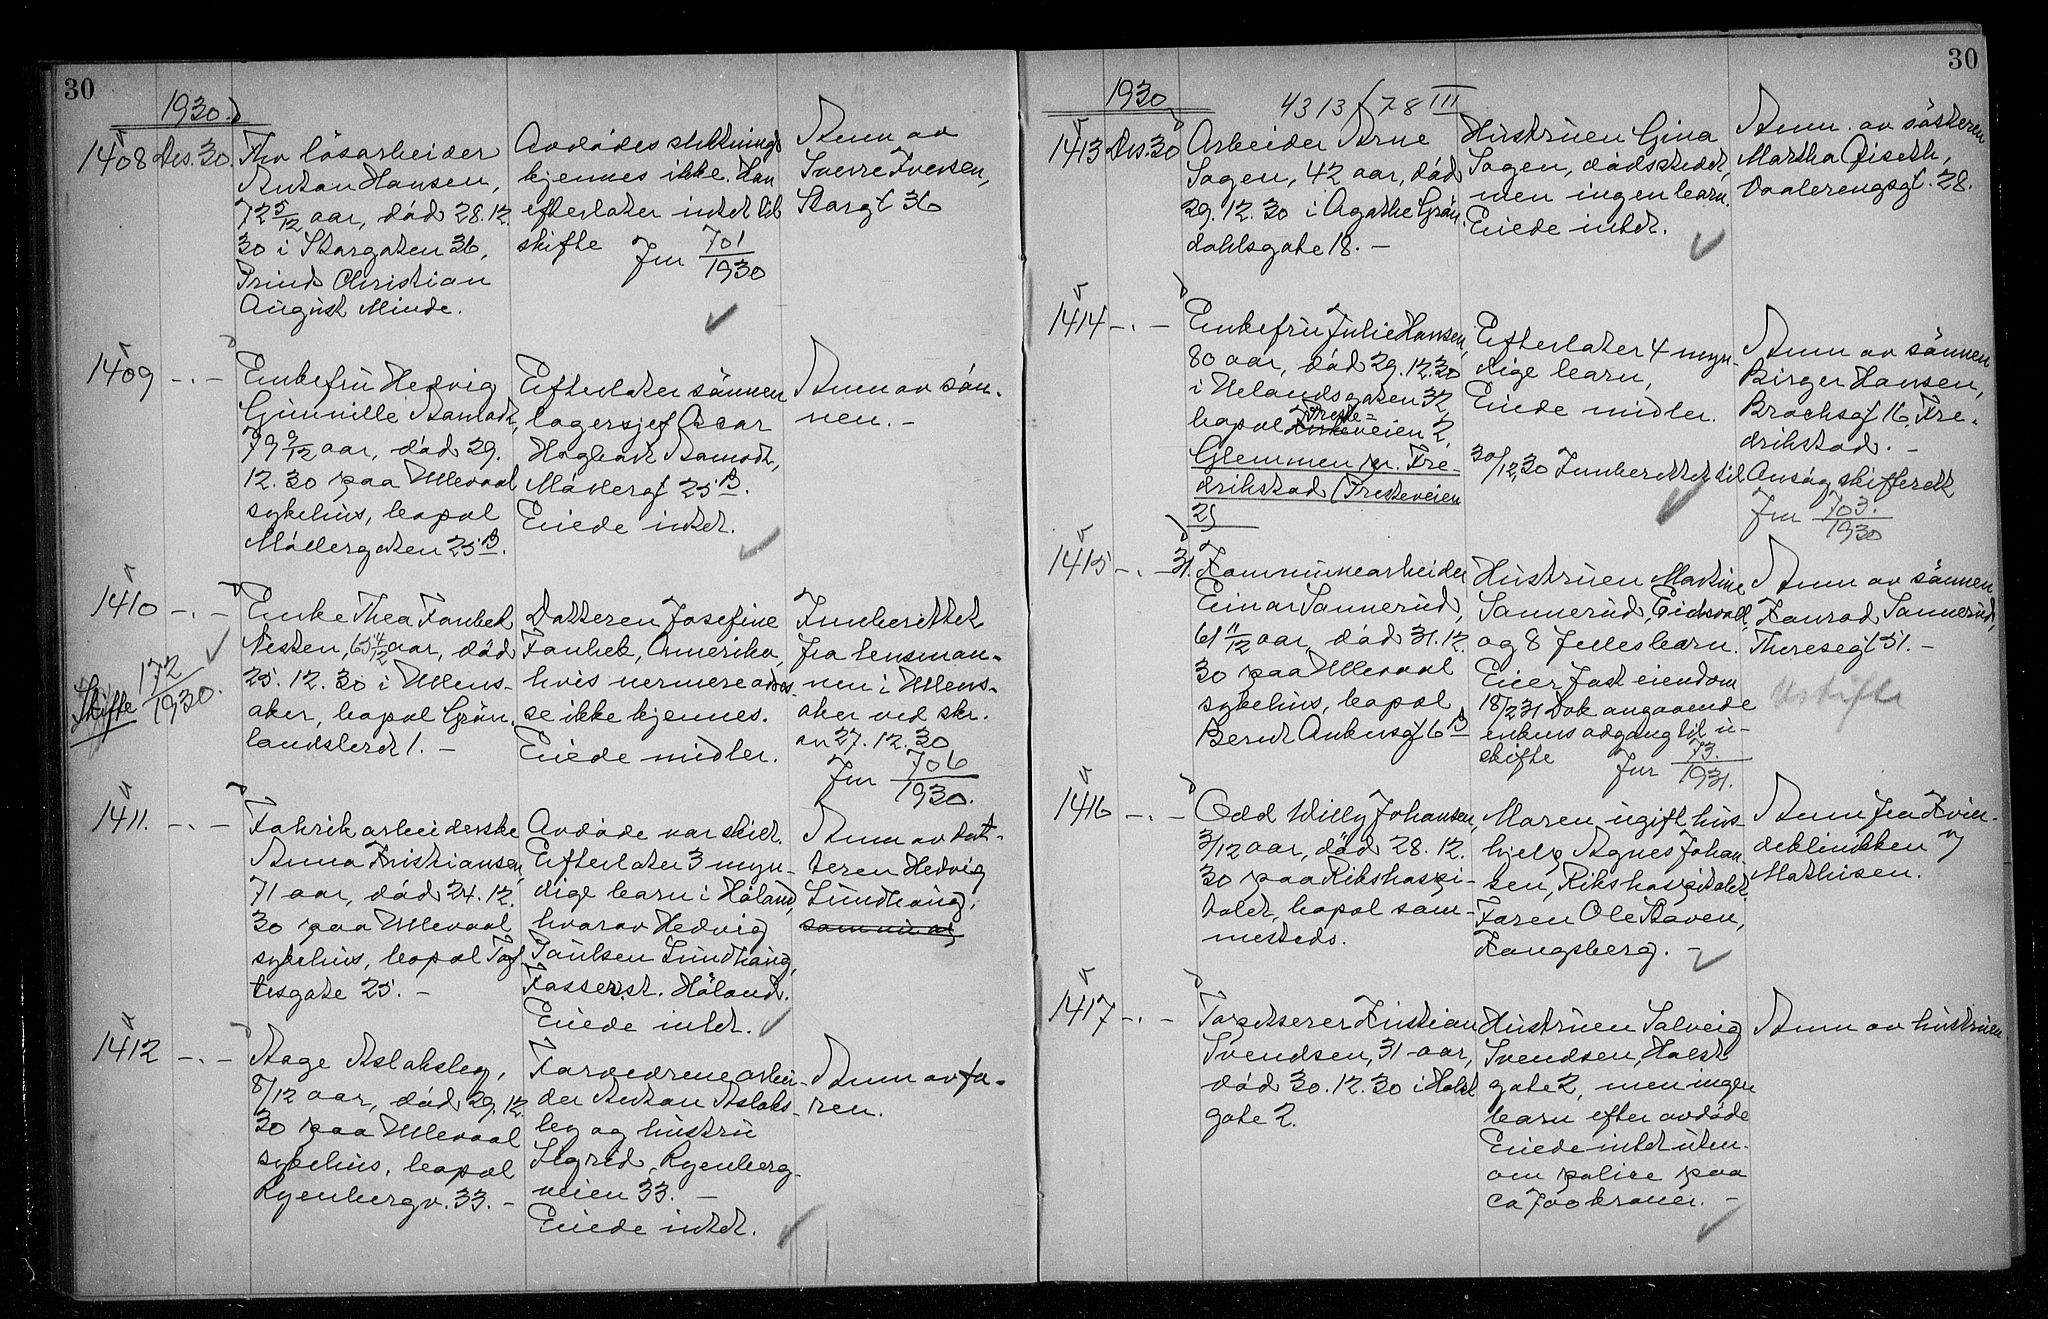 30
1930.
1408 Des. 30.
Fhv løsarbeider
Anton Hansen,
72 5/12 aar, død 28.12.
30 i Storgaten 36,
Prinds Christian
August Minde.
Avdødes slektninge
kjennes ikke. Han
efterlater intet til
skifte Jnr 701/1930
Anm av
Sverre Iversen,
Storgt 36
1409 -.-
Enkefru Hedvig
Gunnille Aamodt,
79 9/12 aar, død 29.
12.30 paa Ullevaal
sykehus, bopæl
Møllergaten 25 B.
Efterlater sønnen
lagersjef Oscar
Hogbart Aamodt,
Møllergt 25 B.
Eiede intet.
Anm av søn-
nen. -
1410 -.-
Skifte 172/1930.
Enke Thea Fonbek
Nesten, 65 4/12 aar, død
25.12.30 i Ullens-
aker, bopæl Grøn-
landsleret 1. -
Datteren Josefine
Fonbek, Amerika,
hvis nermere adres-
se ikke kjennes.
Eiede midler.
Innberettet
fra lensman-
nen i Ullens-
aker ved skr.
av 27.12.30
Jnr 706/1930.
1411. -.-
Fabrikarbeiderske
Anna Kristiansen,
71 aar, død 24.12.
30 paa Ullevaal
sykehus, bopæl Tof-
tesgate 25. -
Avdøde var skilt.
Efterlater 3 myn-
dige barn i Høland,
hvorav Hedvig
Paulsen Lundhaug,
Fosser st. Høland.
Eiede intet.
Anm av dat-
teren Hedvig
Lundhaug.
1412 -.-
Aage Aslaksby,
8/12 aar, død 29.12.
30 paa Ullevaal
sykehus, bopæl
Ryenbergv. 33. -
Farvedrenearbei-
der Anton Aslaks-
by og hustru
Sigrid, Ryenberg-
veien 33. -
Eiede intet.
Anm av fa-
ren.
30
1930
4313/78 III
1413 Des. 30
Arbeider Arne
Sogen, 42 aar, død
29.12.30 i Agathe Grøn-
dahlsgate 18. -
Hustruen Gina
Sogen, dødsstedet,
men ingen barn.
Eiede intet.
Anm. av søsteren
Martha Øiseth,
Vaalerengsgt. 28.
1414 -.-
Enkefru Julie Hansen,
80 aar, død 29.12.30
i Uelandsgaten 32,
bopæl Treste=
veien 2,
Glemmen pr. Fre-
drikstad (Tresteveien
2)
Efterlater 4 myn-
dige barn,
Eiede midler.
30/12.30 Innberettet til
Anm av sønnen
Birger Hansen,
Brochsgt 16, Fre-
drikstad. -
Onsøy skifterett
Jnr 703/1930
1415 -.- 31.
Kommunearbeider
Einar Sannerud,
61 11/12 aar, død 31.12.
30 paa Ullevaal
sykehus, bopæl
Bernt Ankersgt 6 B
Hustruen Martine
Sannerud, Eidsvoll,
og 8 fellesbarn.
Eier fast eiendom
18/2 31 Dok angaaende
enkens adgang til u-
skifte Jnr 73/1931.
Anm av sønnen
Konrad Sannerud,
Theresegt 51. -
Uskifte
1416 -.-
Odd Willy Johansen,
3/12 aar, død 28.12.
30 paa Rikshospi-
talet, bopæl sam-
mesteds.
Moren ugift hus-
hjelp Agnes Johan-
sen, Rikshospitalet.
Faren Ole Aaven,
Kongsberg. -
Anm fra Kvin-
deklinikken v
Mathisen.
1417 -.-
Tapetserer Kristian
Svendsen, 31 aar,
død 30.12.30 i Holst
gate 2.
Hustruen Solveig
Svendsen, Holst
gate 2, men ingen
barn efter avdøde
Eiede intet uten-
om police paa
ca 700 kroner. -
Anm av hustruen.